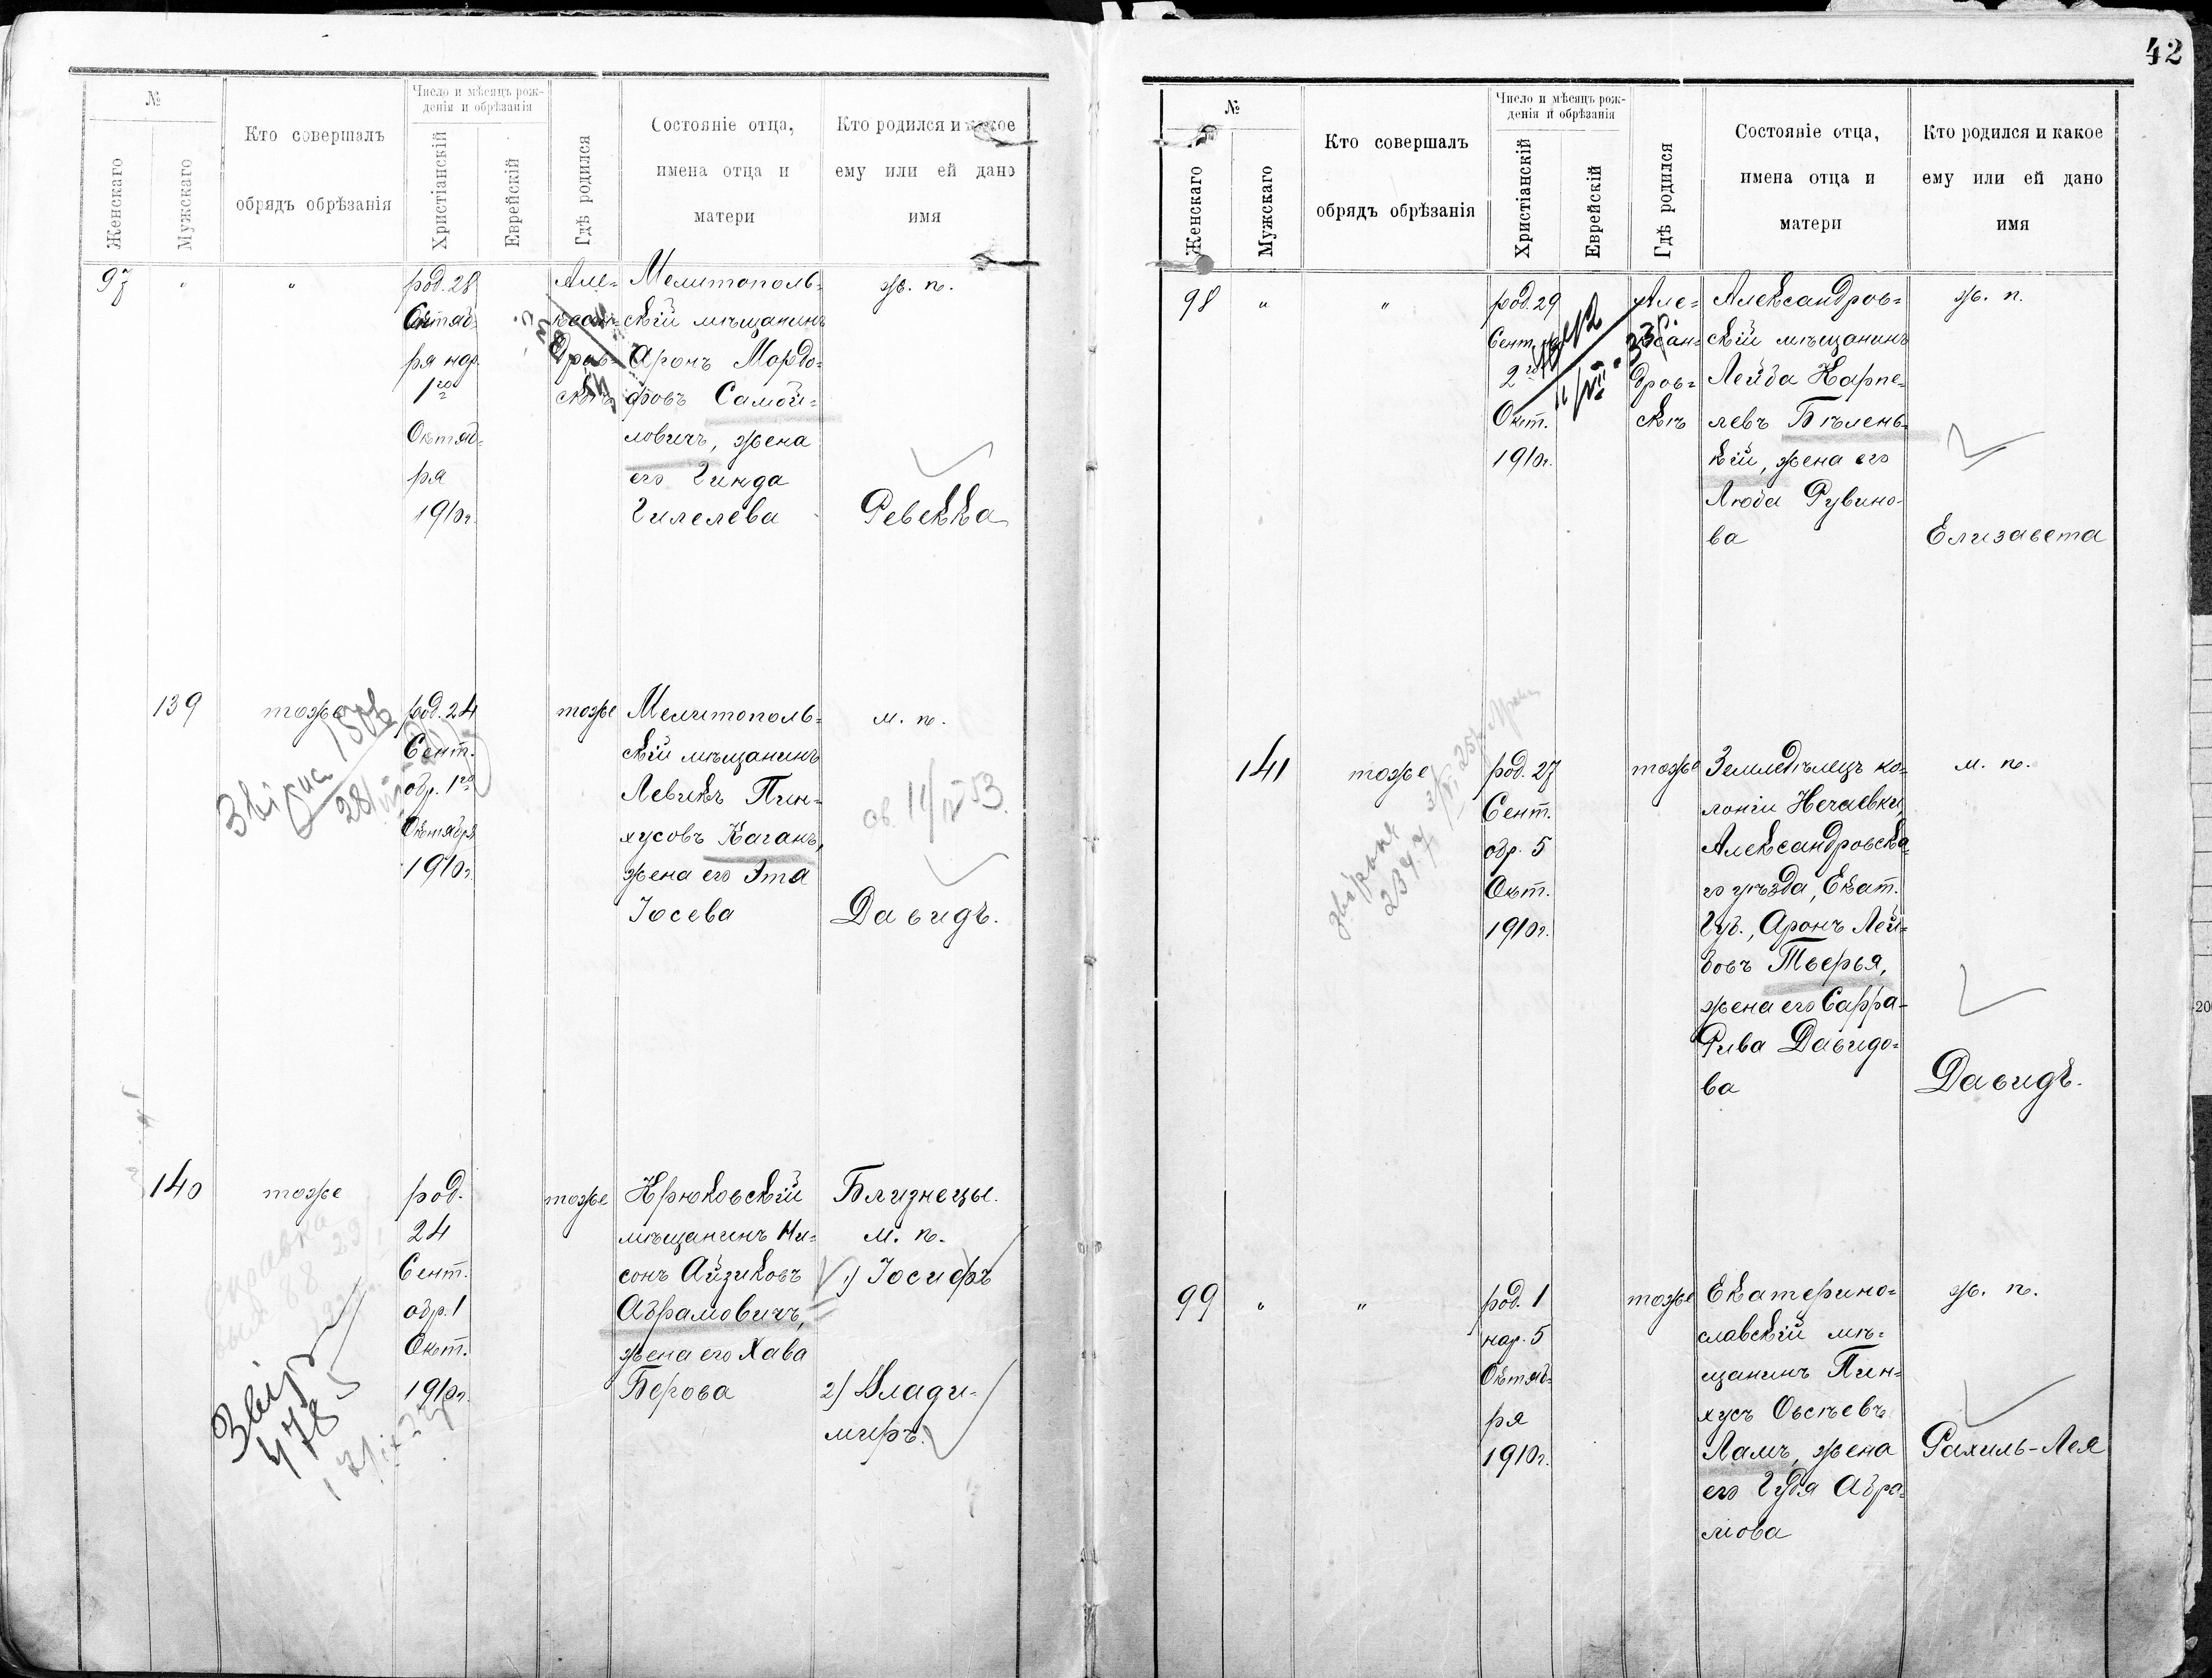 42
№
Женскаго
Мужскаго
Кто совершалъ
обрядъ обрѣзанія
Число и мѣсяцъ рож-
денія и обрѣзанія
Христіанскій
Еврейскій
Гдѣ родился
Состояніе отца,
имена отца и
матери
Кто родился и какое
ему или ей дано
имя
97
"
"
род. 28
ря нар.
1го
Октяб-
ря
1910г.
Але-
ксан-
дров-
скѣ
Мелитополь-
скій мѣщанинъ
Аронъ Мордо-
ховъ Самой-
ловичъ, жена
его Гинда
Гилелева
ж. п.
Ревекка
139
тоже
род. 24
Сент.
обр. 1го
Октября
1910г.
тоже
Мелитополь-
скій мѣщанинъ
Левикъ Пин-
хусовъ Каганъ,
жена его Эта
Іосева
м. п.
Давидъ.
140
тоже
род.
24
Сент.
обр. 1
Окт.
1910г.
тоже
Крюковскій
мѣщанинъ Ни-
сонъ Айзиковъ
Абрамовичъ,
жена его Хава
Берова
Близнецы.
м. п.
1) Іосифъ
2) Влади-
миръ.
№
Женскаго
Мужскаго
Кто совершалъ
обрядъ обрѣзанія
Число и мѣсяцъ рож-
денія и обрѣзанія
Христіанскій
Еврейскій
Гдѣ родился
Состояніе отца,
имена отца и
матери
Кто родился и какое
ему или ей дано
имя
98
"
"
род. 29
Сент.
2го
Окт.
1910г.
Але-
ксан-
дров-
скѣ
Александров-
скій мѣщанинъ
Лейба Карпе-
левъ Бѣлень-
кій, жена его
Люба Рувино-
ва
ж. п.
Елизавета
141
тоже
род. 27
Сент.
обр. 5
Окт.
1910г.
тоже
Земледѣлецъ ко-
лоніи Нечаевки,
Александровска-
го уѣзда, Екат.
Губ., Аронъ Лей-
бовъ Тверья,
жена его Сарра-
Рива Давидо-
ва
м. п.
Давидъ.
99
"
"
род. 1
нар. 5
Октяб-
ря
1910г.
тоже
Екатерино-
славскій мѣ-
щанинъ Пин-
хусъ Овсѣевъ
Ламъ, жена
его Гудя Абра-
мова
ж. п.
Рахиль-Лея